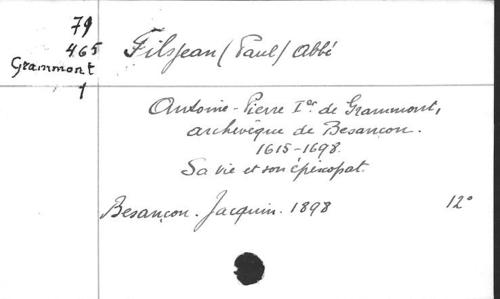 79
465
Grammont
1
Filsjean (Paul) Abbé
Antoine-Pierre Ier de Grammont,
archevêque de Besançon.
1615-1698.
Sa vie et son épiscopat.
Besançon. Jacquin. 1898 12°